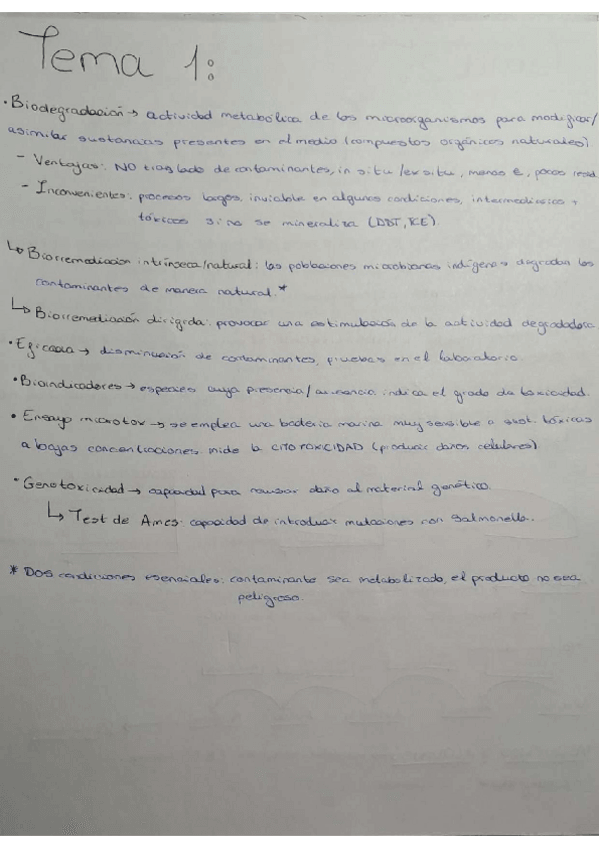 Tema 1:
• Biodegradación → actividad metabólica de los microorganismos para modificar/
asimilar sustancias presentes en el medio (compuestos orgánicos naturales)
- Ventajas: NO traslado de contaminantes, in situ/ex situ, menos €, pocos resid.
- Inconvenientes: procesos largos, inviable en algunas condiciones, intermediarios +
tóxicos si no se mineraliza (DDT, RE).
↳ Biorremediación intrínseca/natural: las poblaciones microbianas indígenas degradan los
contaminantes de manera natural.*
↳ Biorremediación dirigida: provocar una estimulación de la actividad degradadora.
• Eficacia → disminución de contaminantes, pruebas en el laboratorio.
• Bioindicadores → especies cuya presencia/ausencia indica el grado de toxicidad.
• Ensayo microtox → se emplea una bacteria marina muy sensible a sust. tóxicas
a bajas concentraciones, mide la CITOTOXICIDAD (producir daños celulares)
• Genotoxicidad → capacidad para causar daño al material genético.
↳ Test de Ames: capacidad de introducir mutaciones con Salmonella.
* Dos condiciones esenciales: contaminante sea metabolizado, el producto no sea
peligroso.